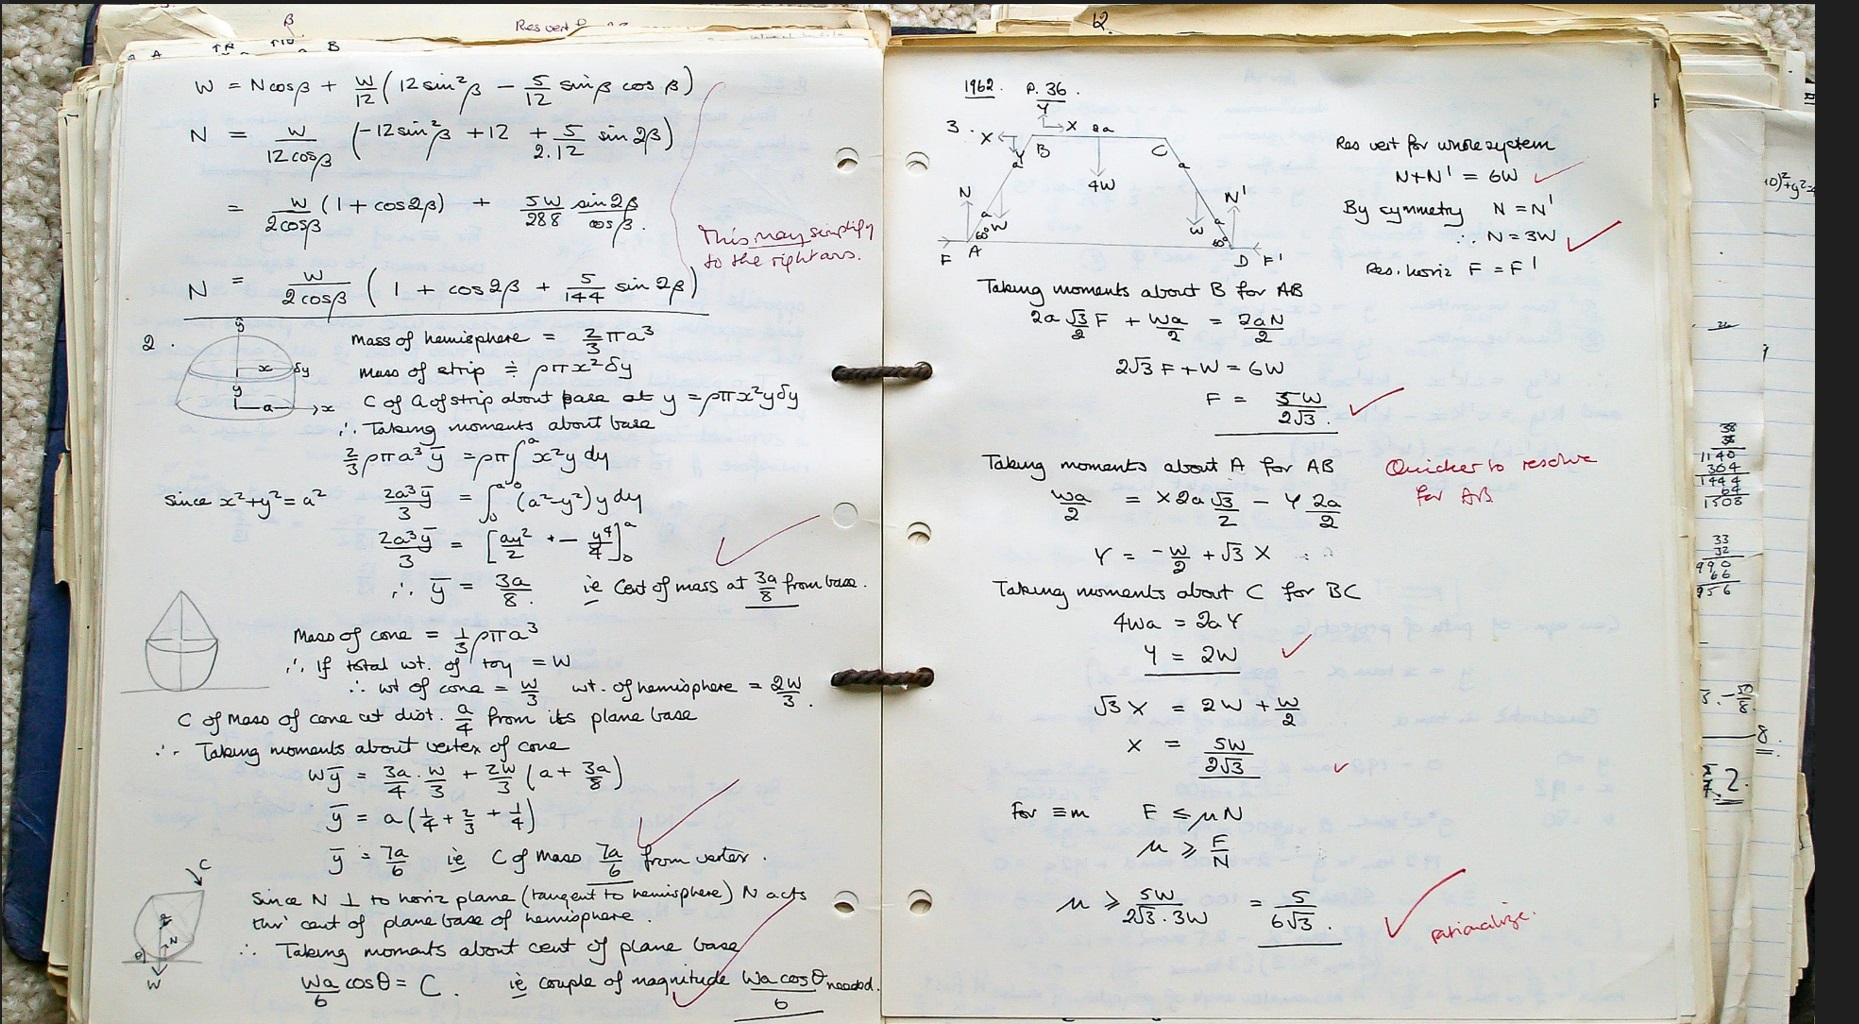 β
Res vert
A
B
W = Ncosβ + W/12 (12 sin²β − 5/12 sinβ cosβ)
N = W/12cosβ (−12sin²β + 12 + 5/2.12 sin2β)
= W/2cosβ (1 + cos2β) + 5W/288 sin2β/cosβ.
This may simplify
to the right ans.
N = W/2cosβ (1 + cos2β + 5/144 sin2β)
2.
Mass of hemisphere = 2/3 πa³
x δy
Mass of strip ≑ ρπx²δy
y
a x
C of G of strip about base at y = ρπx²yδy
∴ Taking moments about base
2/3 ρπa³ȳ = ρπ∫₀ᵃ x²y dy
Since x²+y² = a² 2a³ȳ/3 = ∫₀ᵃ (a²−y²)y dy
2a³ȳ/3 = [ay²/2 − y⁴/4]₀ᵃ
∴ ȳ = 3a/8. ie Cent of mass at 3a/8 from base.
Mass of cone = 1/3 ρπa³
∴ If total wt. of toy = W
∴ wt of cone = W/3 wt. of hemisphere = 2W/3.
C of Mass of cone at dist. a/4 from its plane base
∴ Taking moments about vertex of cone
Wȳ = 3a/4 . W/3 + 2W/3 (a + 3a/8)
ȳ = a(1/4 + 2/3 + 1/4)
ȳ = 7a/6 ie C of Mass 7a/6 from vertex.
C
Since N ⊥ to horiz plane (tangent to hemisphere) N acts
thr' cent of plane base of hemisphere.
N
θ
W
∴ Taking moments about cent of plane base
Wa/6 cosθ = C. ie couple of magnitude Wa cosθ/6 needed.
12.
1962. P. 36.
3.
Y
X X 2a
Y B C
a a
4W
N N'
a W W a
60° 60°
F A D F'
Res vert for whole system
N+N' = 6W
By symmetry N = N'
∴ N = 3W
Res. horiz F = F'
Taking moments about B for AB
2a √3/2 F + Wa/2 = 2aN/2
2√3 F + W = 6W
F = 5W/2√3.
Taking moments about A for AB
Quicker to resolve
for AB
Wa/2 = X 2a √3/2 − Y 2a/2
Y = −W/2 + √3 X
Taking moments about C for BC
4Wa = 2aY
Y = 2W
√3 X = 2W + W/2
X = 5W/2√3
For ≡m F ≤ μN
μ ≥ F/N
μ ≥ 5W/2√3.3W = 5/6√3.
rationalize.
38
1140
304
1444
64
1508
33
32
990
66
956
8.
2.